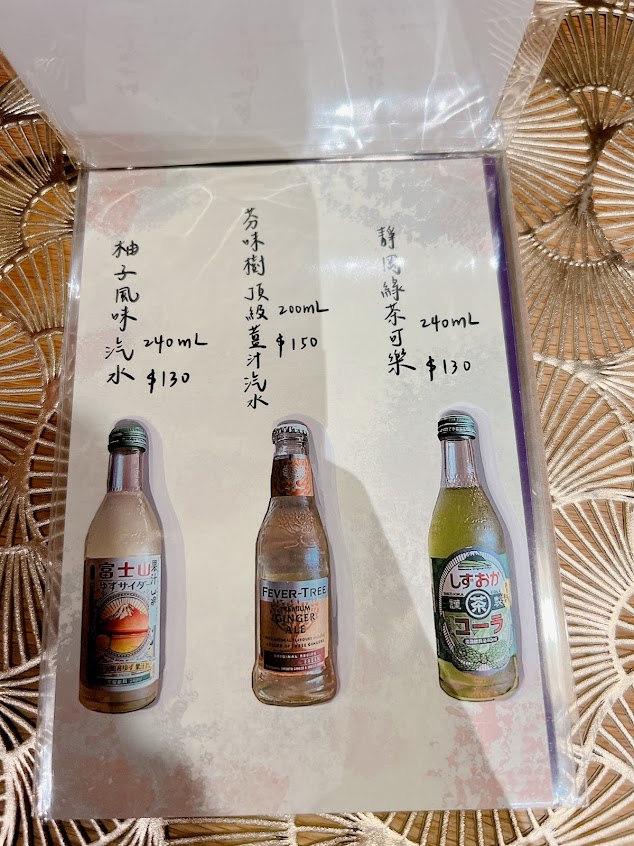 柚子風味汽水
240mL
$130
芬味樹頂級薑汁汽水
200mL
$150
靜岡綠茶可樂
240mL
$130
富士山
ゆずサイダー
果汁
FEVER-TREE
PREMIUM
GINGER
ALE
しずおか
茶
コーラ